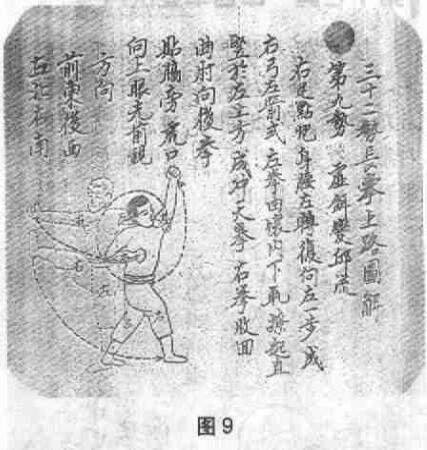 三十二勢長拳上路圖解
第九勢 虛 邱流
右足點 身腰左轉復向左一步成
右弓左箭式 左拳由懷內下 撩起直
豎於左上方成冲天拳 右拳收回
曲肘向後拳
貼脇旁虎口
向上眼光前視
方向
前東後西
左北右南
右
左
图9